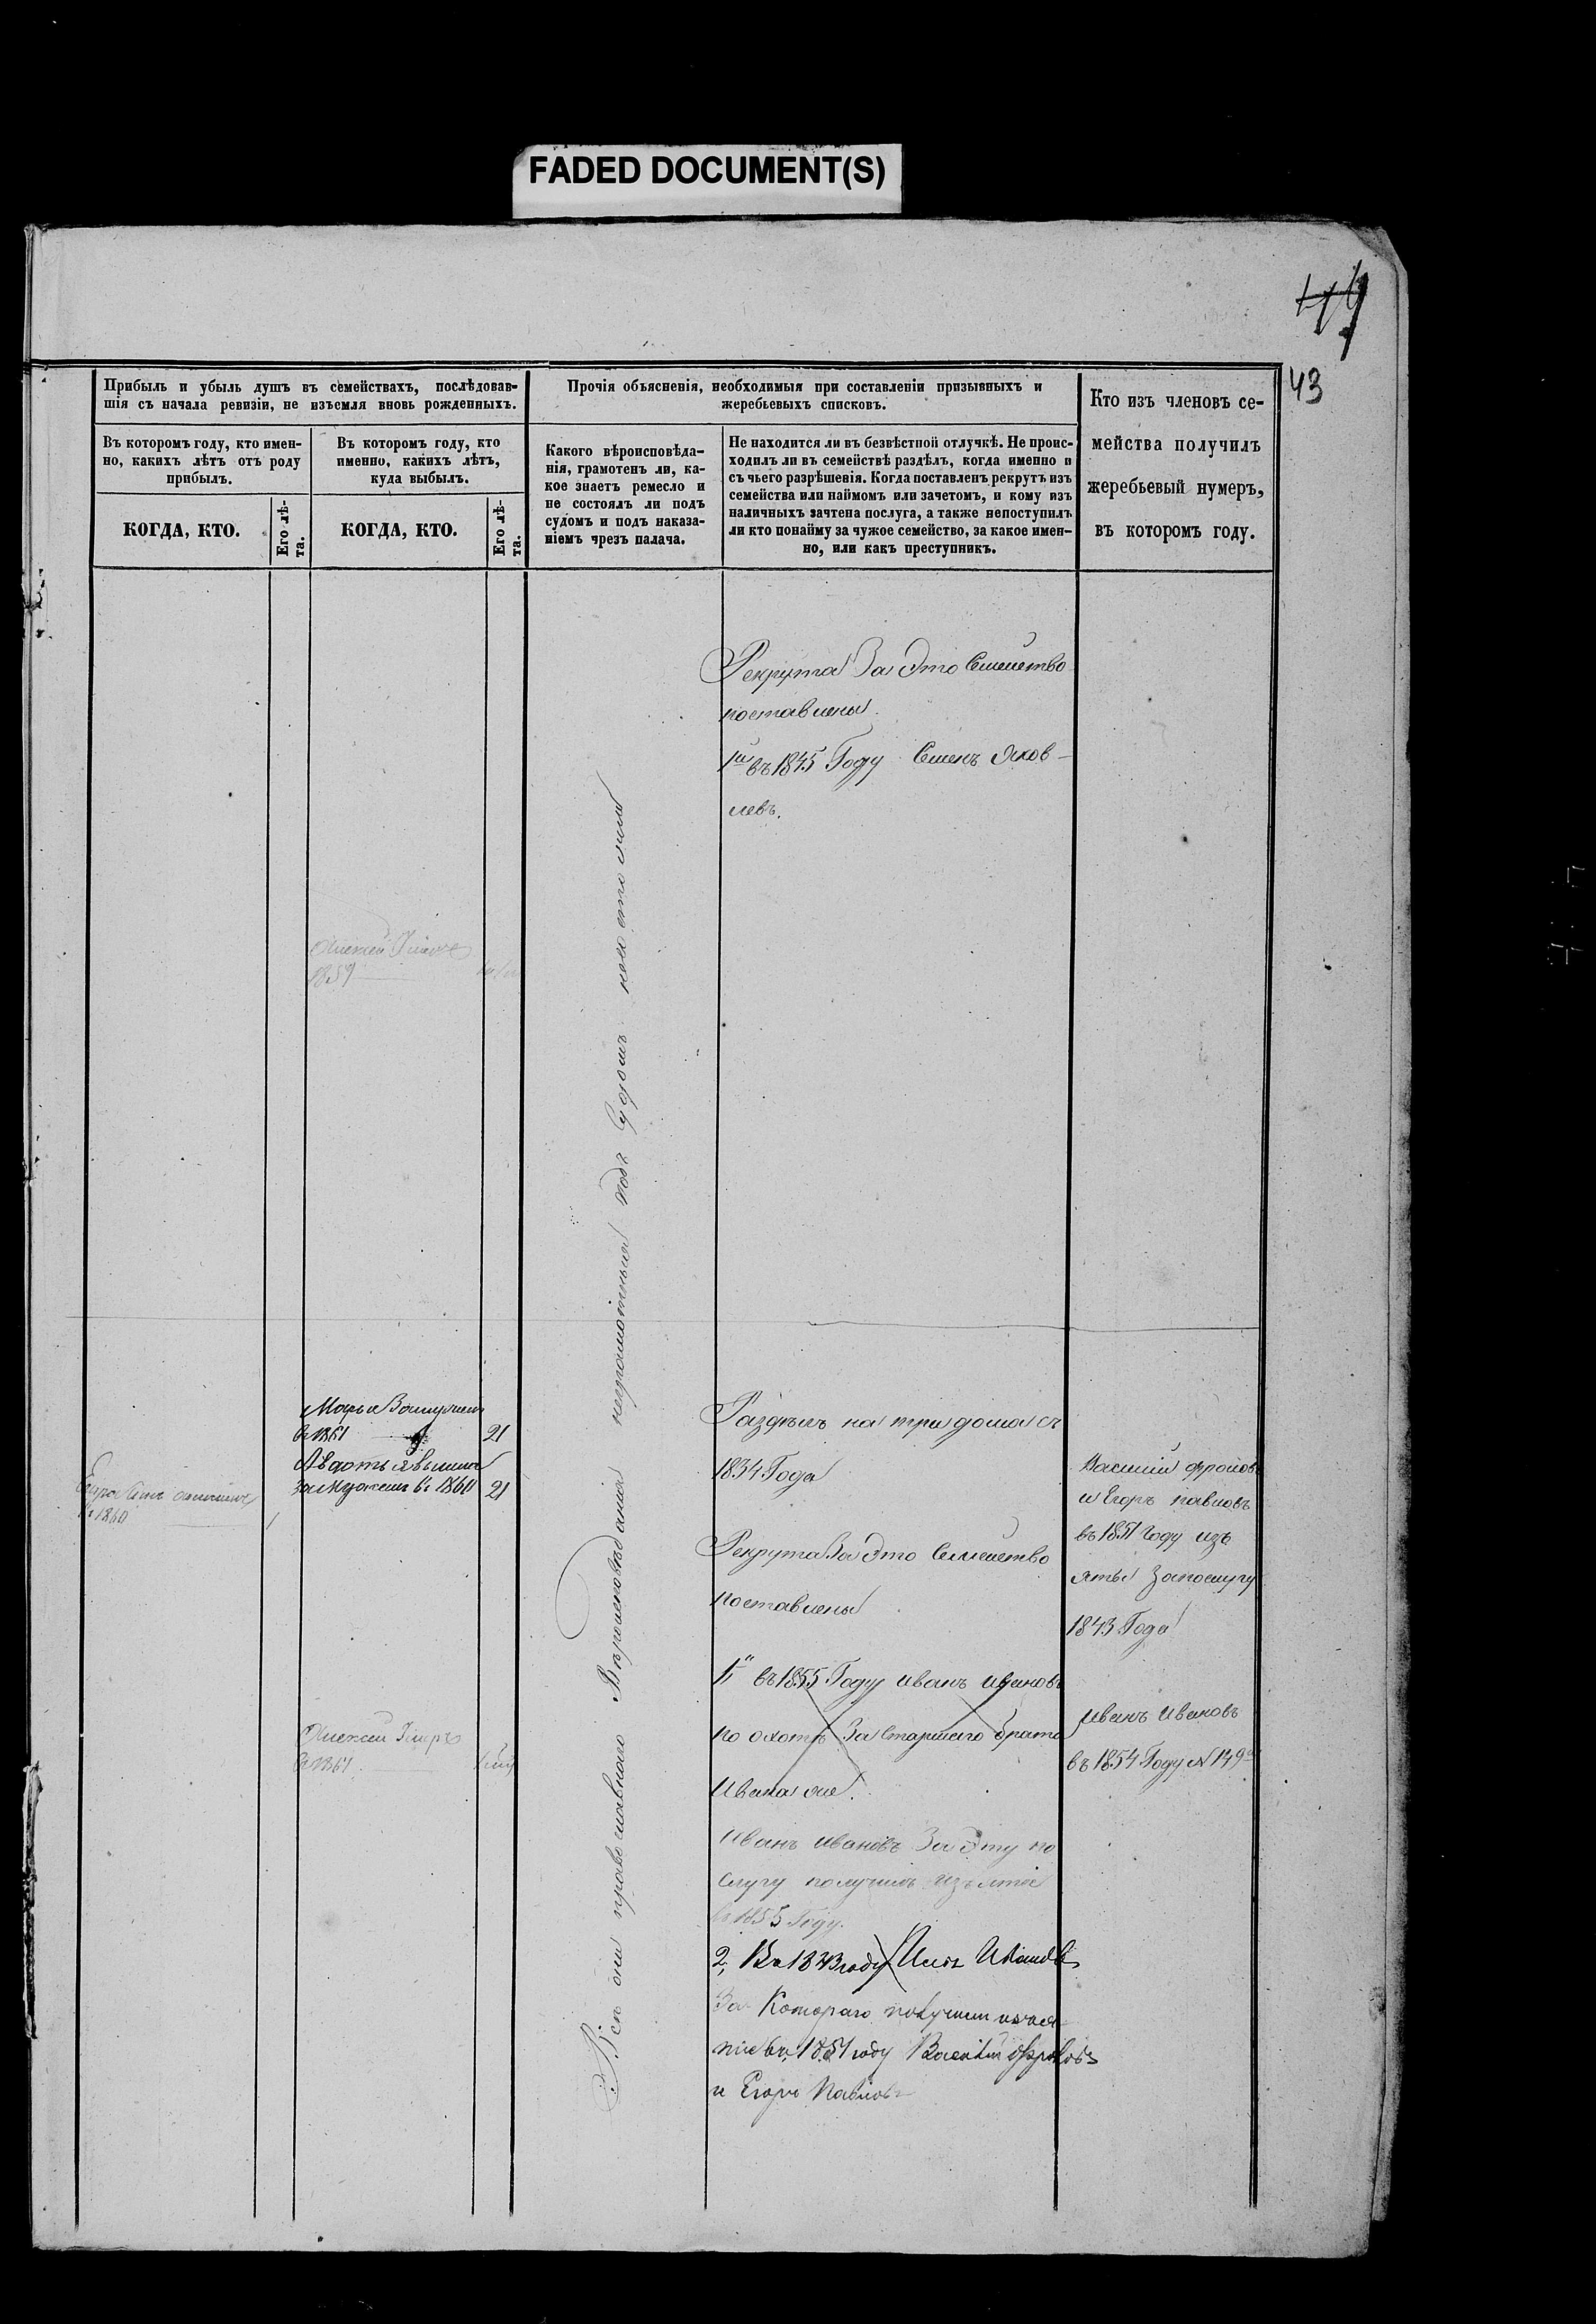 FADED DOCUMENT(S)
43
Прибыль и убыль душъ въ семействахъ, послѣдовав-
шія съ начала ревизіи, не изъемля вновь рожденныхъ.
Въ которомъ году, кто имен-
но, какихъ лѣтъ отъ роду
прибылъ.
КОГДА, КТО.
Его лѣ-
та.
Въ которомъ году, кто
именно, какихъ лѣтъ,
куда выбылъ.
КОГДА, КТО.
Его лѣ-
та.
Прочія объясненія, необходимыя при составленіи призывныхъ и
жеребьевыхъ списковъ.
Какого вѣроисповѣда-
нія, грамотенъ ли, ка-
кое знаетъ ремесло и
не состоялъ ли подъ
судомъ и подъ наказа-
ніемъ чрезъ палача.
Не находится ли въ безвѣстной отлучкѣ. Не проис-
ходилъ ли въ семействѣ раздѣлъ, когда именно и
съ чьего разрѣшенія. Когда поставленъ рекрутъ изъ
семейства или наймомъ или зачетомъ, и кому изъ
наличныхъ зачтена послуга, а также непоступилъ
ли кто понайму за чужое семейство, за какое имен-
но, или какъ преступникъ.
Кто изъ членовъ се-
мейства получилъ
жеребьевый нумеръ,
въ которомъ году.
Рекрута За Это Семейство
поставлены
1й въ 1845 Году Семенъ Яков-
левъ.
Алексей
1859
Марья
въ 1861 21
Авдотья вышла
замужъ въ 1860 21
1860
Алексей
въ 1861
Всѣ они православнаго Вѣроисповѣдания неграмотныя подъ Судомъ несостояли
Раздѣлъ на три дома съ
1834 Года
Рекрута За Это Семейство
поставлены
1, въ 1855 Году Иванъ Ивановъ
по охотѣ За Старшаго брата
Ивана же.
Иванъ Ивановъ За Эту по
слугу получилъ изъятие
въ 1855 Году.
2, Въ 1843 году Ивановъ
За Котораго получили изъя
тие въ 1851 году Василий Фроловъ
и Егоръ Павловъ
Василий Фроловъ
и Егоръ Павловъ
въ 1851 Году изъ
яты За послугу
1843 Года
Иванъ Ивановъ
въ 1854 Году № 149й